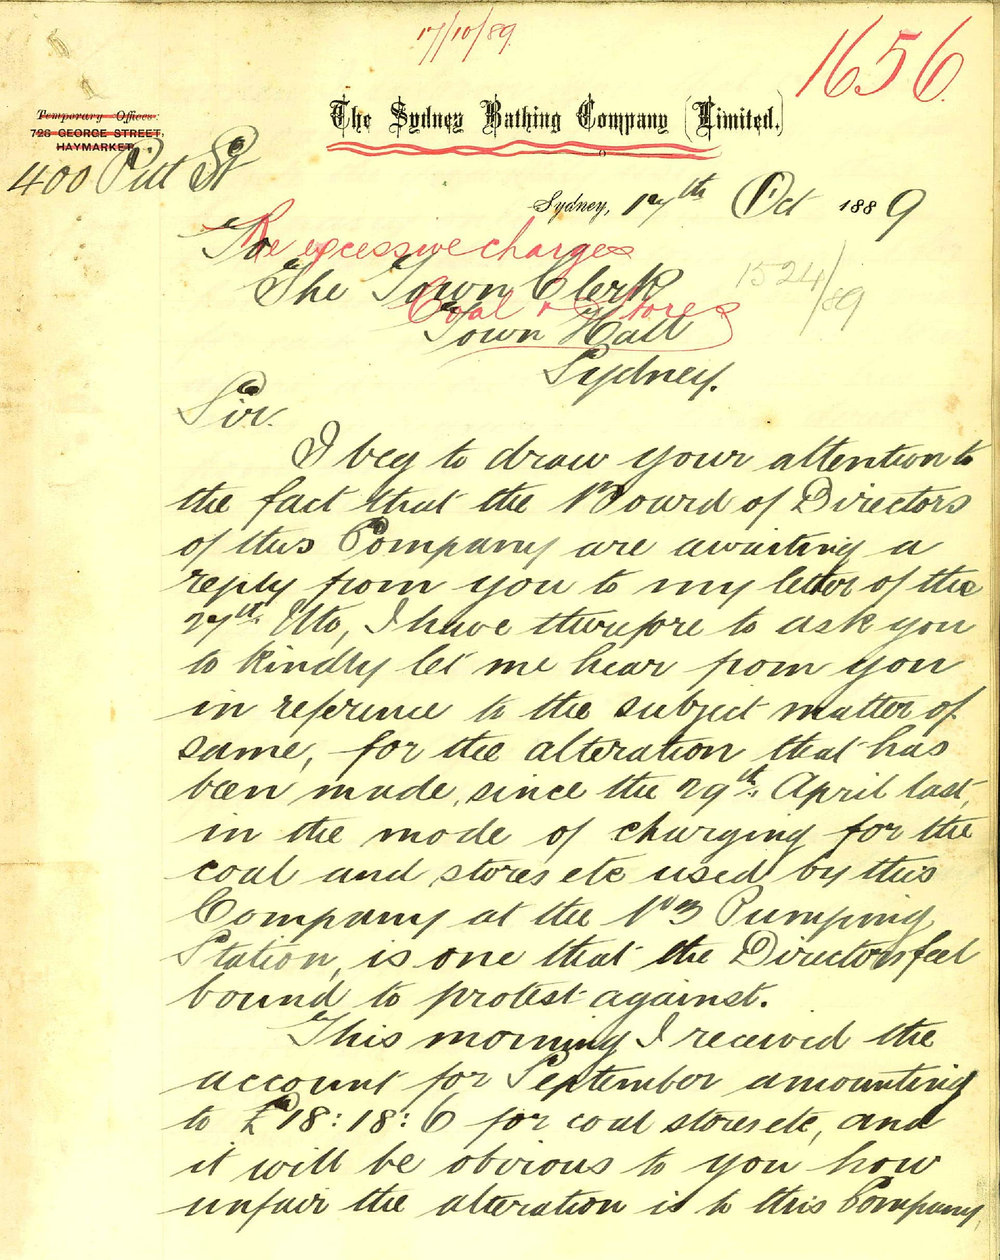 17/10/89
1656.
Temporary Offices:
726 GEORGE STREET,
HAYMARKET.
400 Pitt St
The Sydney Bathing Company (Limited.)
Sydney, 17th Oct 1889
Re excessive charges
Coal & Stores
1524/89
To
The Town Clerk
Town Hall
Sydney.
Sir.
I beg to draw your attention to
the fact that the Board of Directors
of this Company are awaiting a
reply from you to my letter of the
27st. Ulto, I have therefore to ask you
to kindly let me hear from you
in reference to the subject matter of
same, for the alteration that has
been made, since the 29th. April last,
in the mode of charging for the
coal and stores etc used by this
Company at the No 3 Pumping
Station, is one that the Directors feel
bound to protest against.
This morning I received the
account for September amounting
to £18:18:6 for coal stores etc, and
it will be obvious to you how
unfair the alteration is to this Company